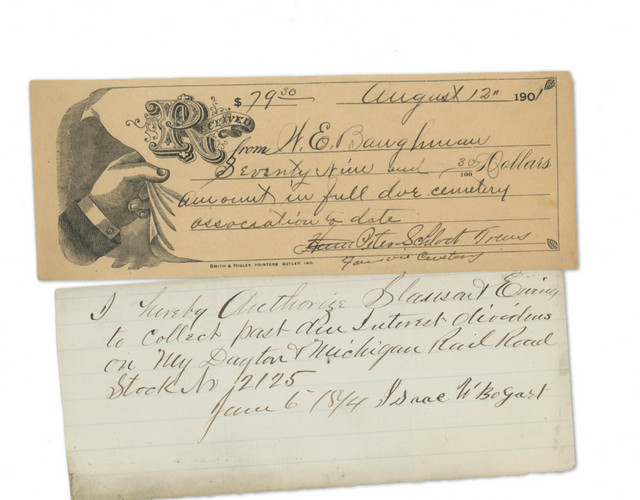 Received $79 30 August 12" 1901
from W. E. Baughman
Seventy Nine and 30/100 Dollars
amount in full due cemetery
association to date
Peter Schlodt Treas
Cemetery
SMITH & RIGLEY PRINTERS BUTLER, IND.
I hereby Authorize & Ewing
to Collect past due Interest dividens
on My Dayton & Michigan Rail Road
Stock No 2125
June 6 1874 Isaac W Bogart